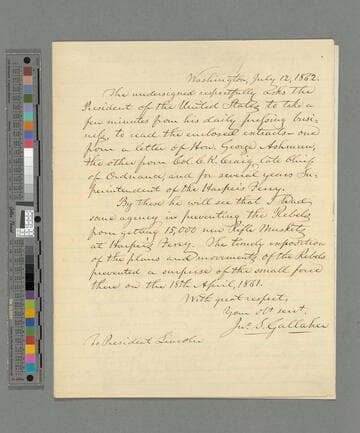 Washington, July 12, 1862.
The undersigned respectfully asks the
President of the United States to take a
few minutes from his daily pressing busi-
ness, to read the enclosed extracts—one
from a letter of Hon. George Ashmun,
the other from Col. C. K. Craig, late Chief
of Ordnance, and for several years Su-
perintendent of the Harper's Ferry.
By these he will see that I had
some agency in preventing the Rebels
from getting 15,000 new Rifle Muskets
at Harper's Ferry. The timely exposition
of the plans and movements of the Rebels
prevented a surprise of the small force
there on the 18th April, 1861.
With great respect,
Your obt servt.
Jno. S. Gallaher
To President Lincoln